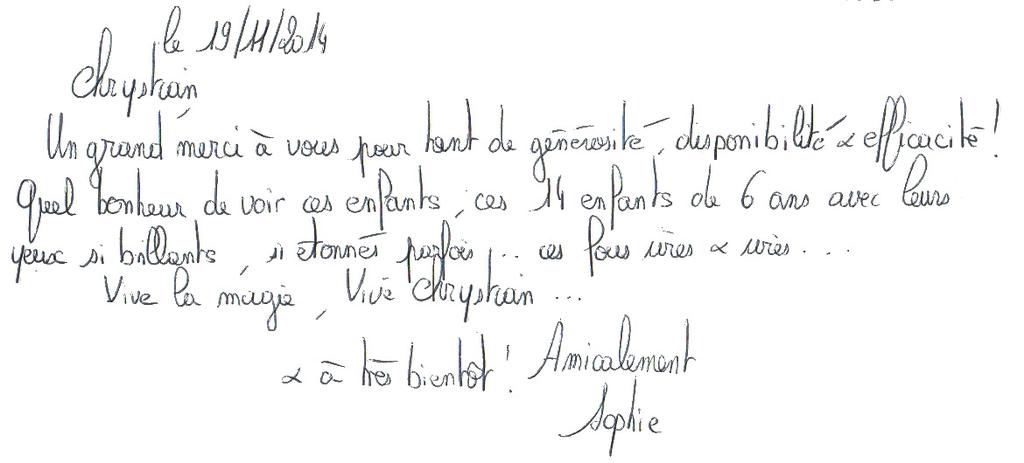 le 19/11/2014
Chrystian
Un grand merci à vous pour tant de générosité, disponibilité & efficacité !
Quel bonheur de voir ces enfants, ces 14 enfants de 6 ans avec leurs
yeux si brillants, si étonnés parfois... ces fous rires & rires....
Vive la magie, Vive Chrystian ...
& à très bientôt ! Amicalement
Sophie